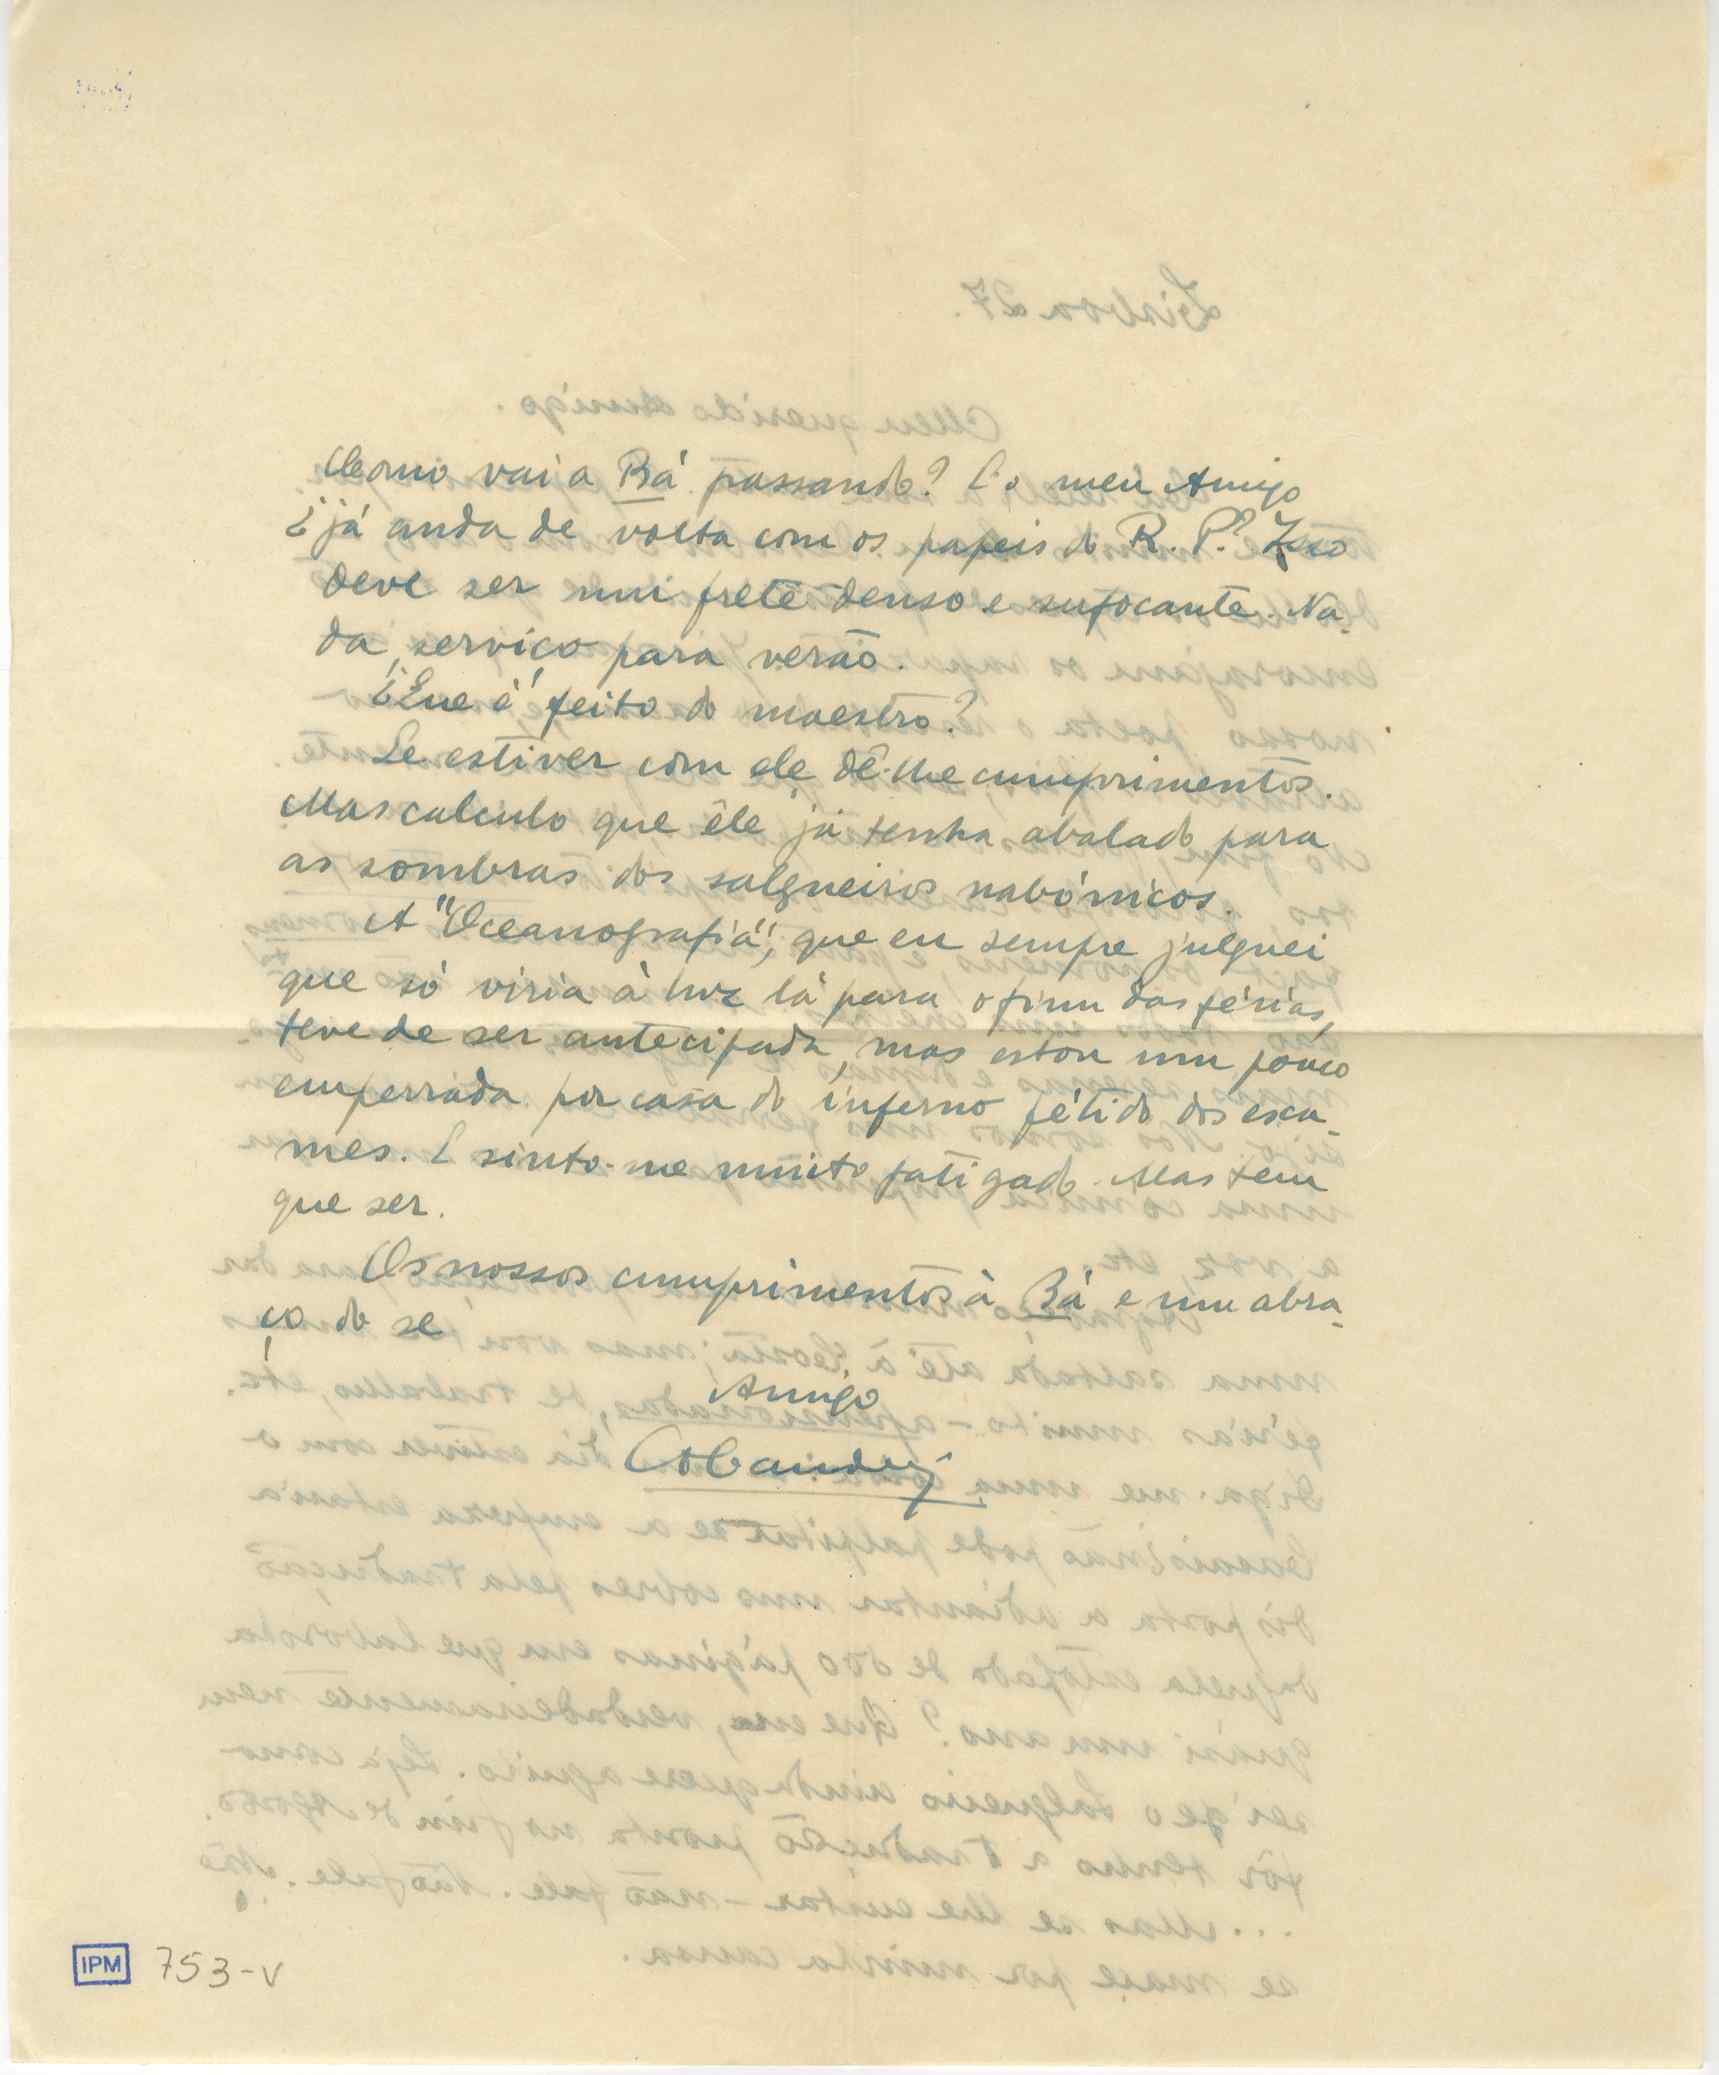 Como vai a Bá passando? E o meu Amigo
¿já anda de volta com os papeis do R. P.? Isso
deve ser um frete denso e sufocante. Na-
da, serviço para verão.
¿Que é feito do maestro?
Se estiver com ele dê-lhe cumprimentos.
Mas calculo que êle já tenha abalado para
as sombras dos salgueiros nabónicos.
A "Oceanografia", que eu sempre julguei
que só viria à luz lá para o fim das férias,
teve de ser antecipada, mas estou um pouco
emperrada por casa do inferno fétido dos exa-
mes. E sinto-me muito fatigado. Mas tem
que ser.
Os nossos cumprimentos à Bá e um abra-
ço do se
Amigo
IPM 753-V